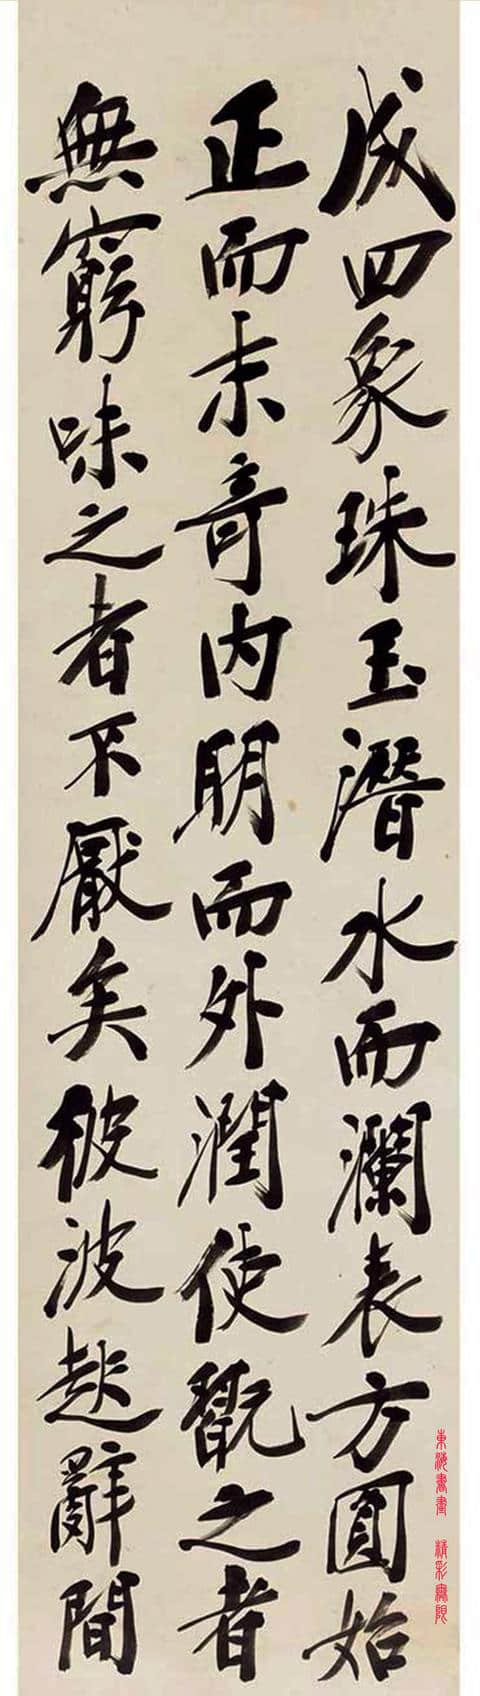 成四象珠玉潛水而瀾表方圓始
正而末奇內明而外潤使翫之者
無窮味之者不厭矣彼波起辭間
東海書畫 精彩無限